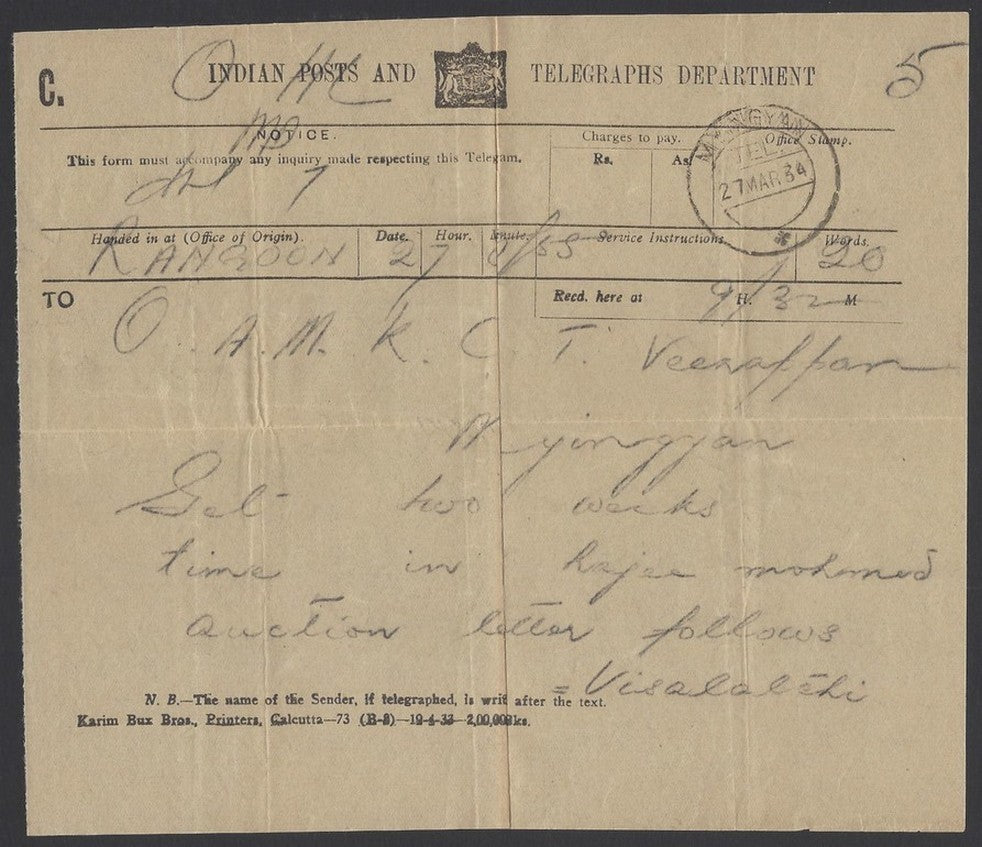 C. INDIAN POSTS AND TELEGRAPHS DEPARTMENT 5
NOTICE.
This form must accompany any inquiry made respecting this Telegam.
Charges to pay.
Rs. As.
Office Stamp.
MYINGYAN
TEL
27 MAR 34
Handed in at (Office of Origin). Date. Hour. Minute. Service Instructions. Words.
RANGOON 27 20
TO
Recd. here at 9 H. 32 M
O. A. M. K. C. T. Veerappan
Myingyan
Get two weeks
time in hajee mohomed
auction letter follows
= Visalatchi
N. B.—The name of the Sender, if telegraphed, is writ after the text.
Karim Bux Bros., Printers, Calcutta—73 (B-8)—19-4-33—2,00,000ks.